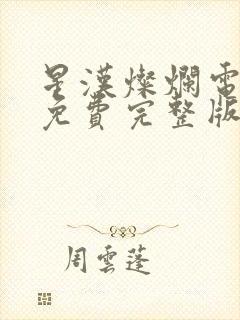 星漢燦爛電
免費完整版
周雲蓬